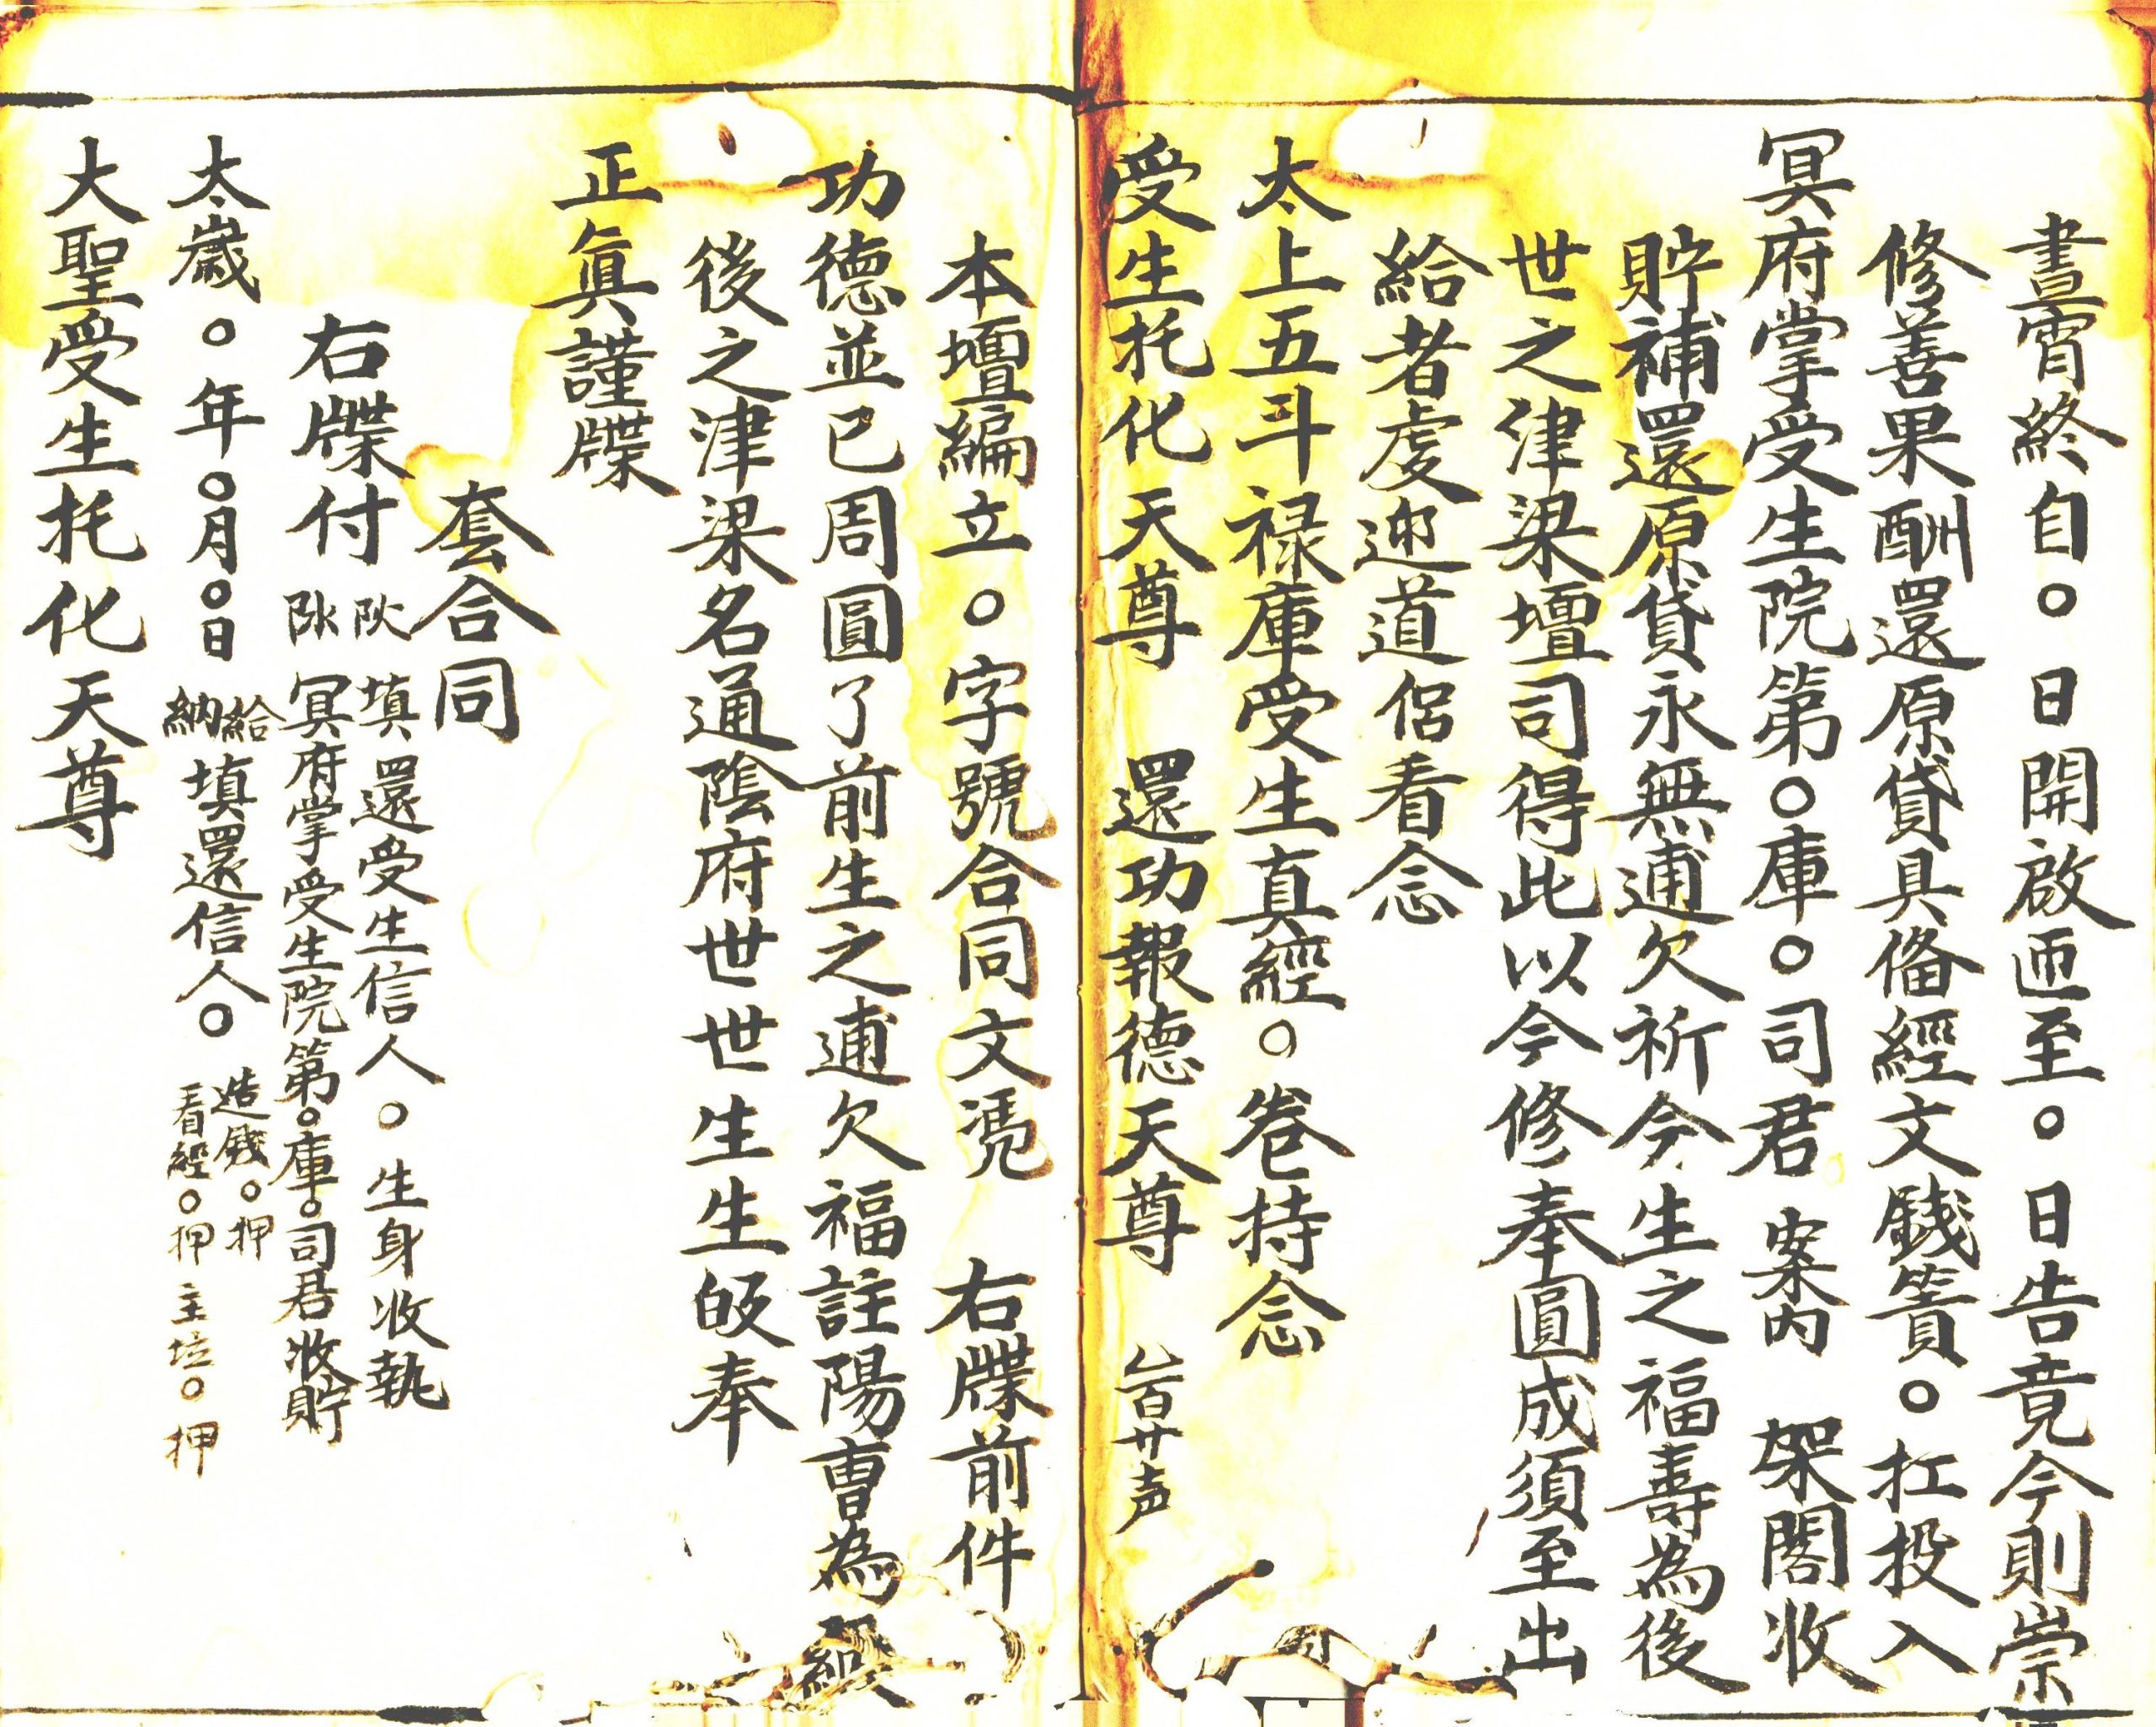 晝宵終自○日開啟迊至○日告竟今則崇
修善果酬還原貸具偹經文錢簀○扛投入
冥府掌受生院第○庫○司君 案內 架閣收
貯補還原貸永無逋欠祈今生之福壽為後
世之津梁壇司得此以今修奉圓成須至出
給者虔迎道侶看念
太上五斗禄庫受生真經○卷持念
受生托化天尊 還功報德天尊 百廿声
本壇編立○字號合同文憑 右牒前件
功德並已周圓了前生之逋欠福註陽曹為
後之津梁名通陰府世世生生皈奉
正眞謹牒
套合同
右牒付
填還受生信人○生身收執
冥府掌受生院第○庫○司君收貯
太歲○年○月○日 給納 填還信人○ 造錢○押 看經○押 主坛○押
大聖受生托化天尊